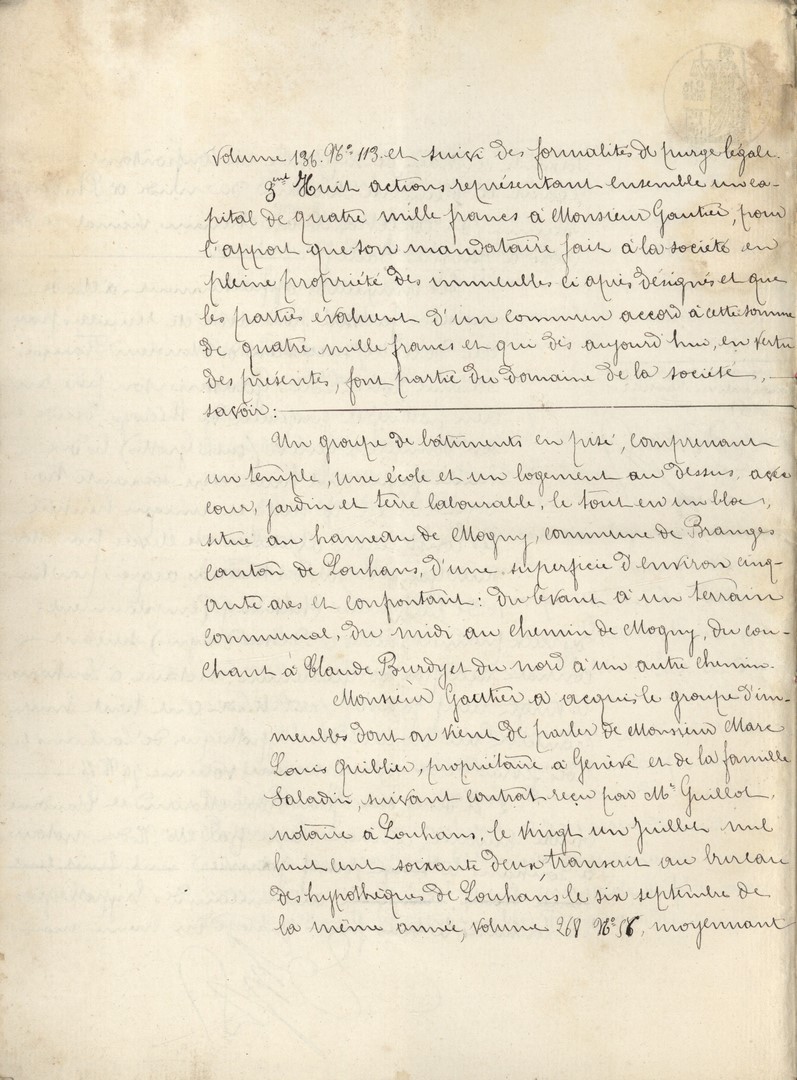 volume 136. N° 113. et suivi des formalités de purge légale.
3ent Huit actions représentant ensemble un ca-
pital de quatre mille francs à Monsieur Gautier, pour
l'apport que son mandataire fait à la société en
pleine propriété des immeubles ci après désignés et que
les parties évaluent d'un commun accord à cette somme
de quatre mille francs et qui dès aujourd'hui, en vertu
des présentes, font partie du domaine de la société,
savoir:
Un groupe de bâtiments en pisé, comprenant
un temple, une école et un logement au dessus, avec
cour, jardin et terre labourable, le tout en un bloc,
situé au hameau de Mogny, commune de Branges
canton de Louhans, d'une superficie d'environ cinq-
ante ares et confrontant: du levant à un terrain
communal, du midi au chemin de Mogny, du cou-
chant à Claude Burdy et du nord à un autre chemin.
Monsieur Gautier a acquis le groupe d'im-
meubles dont on vient de parler de Monsieur Marc
Louis Quiblier, propriétaire à Genève et de la famille
Saladin, suivant contrat reçu par Me Guillot,
notaire à Louhans, le vingt un Juillet mil
huit cent soixante deux, transcrit au bureau
des hypothèques de Louhans le six septembre de
la même année, volume 268 N° 56, moyennant